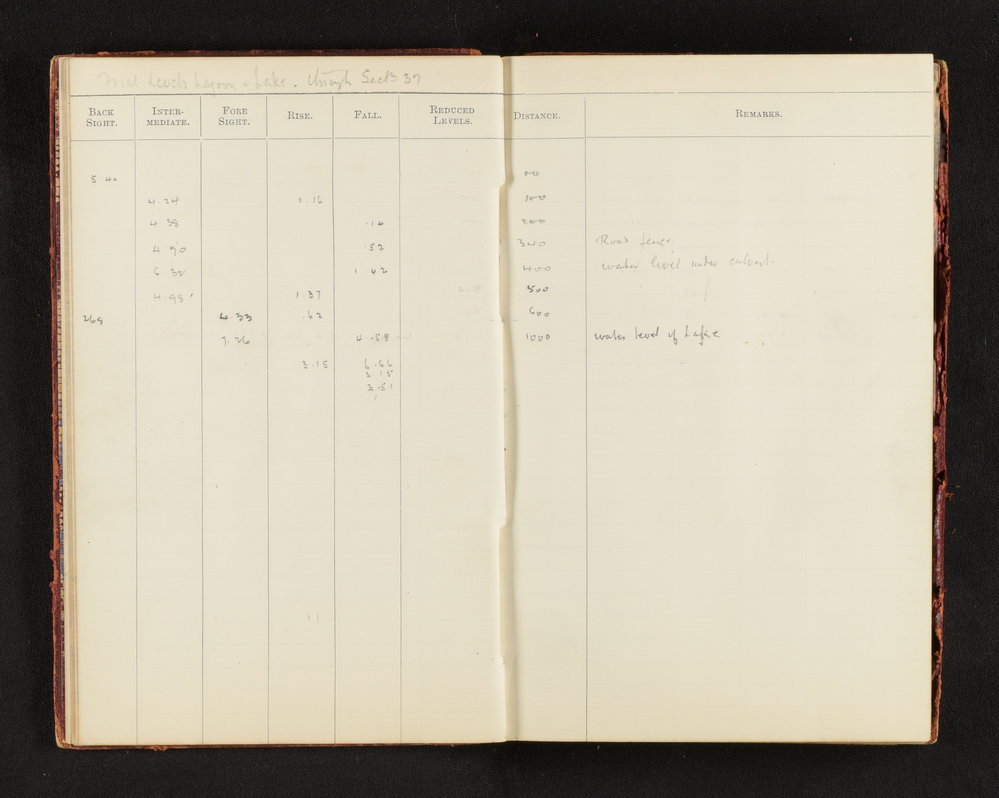 Trial Levels Lagoon & Lake. through Sect 37
BACK SIGHT. INTER-MEDIATE. FORE SIGHT. RISE. FALL. REDUCED LEVELS. DISTANCE. REMARKS.
5.40 00
4.24 1.16 100
4.38 .14 200
4.90 .52 340 Road fence.
6.32 1.42 400 water level under culvert.
4.95 1.37 500
268 4.33 .62 600
7.26 4.58 1000 water level of Lake
3.15 6.66
3.15
3.51